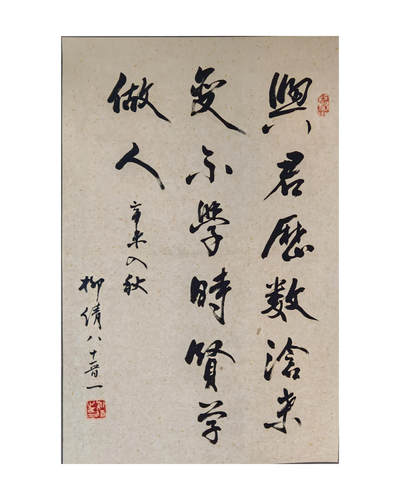 與君歷數滄桑
變不學時賢学
做人
辛未入秋
柳倩八十晋一